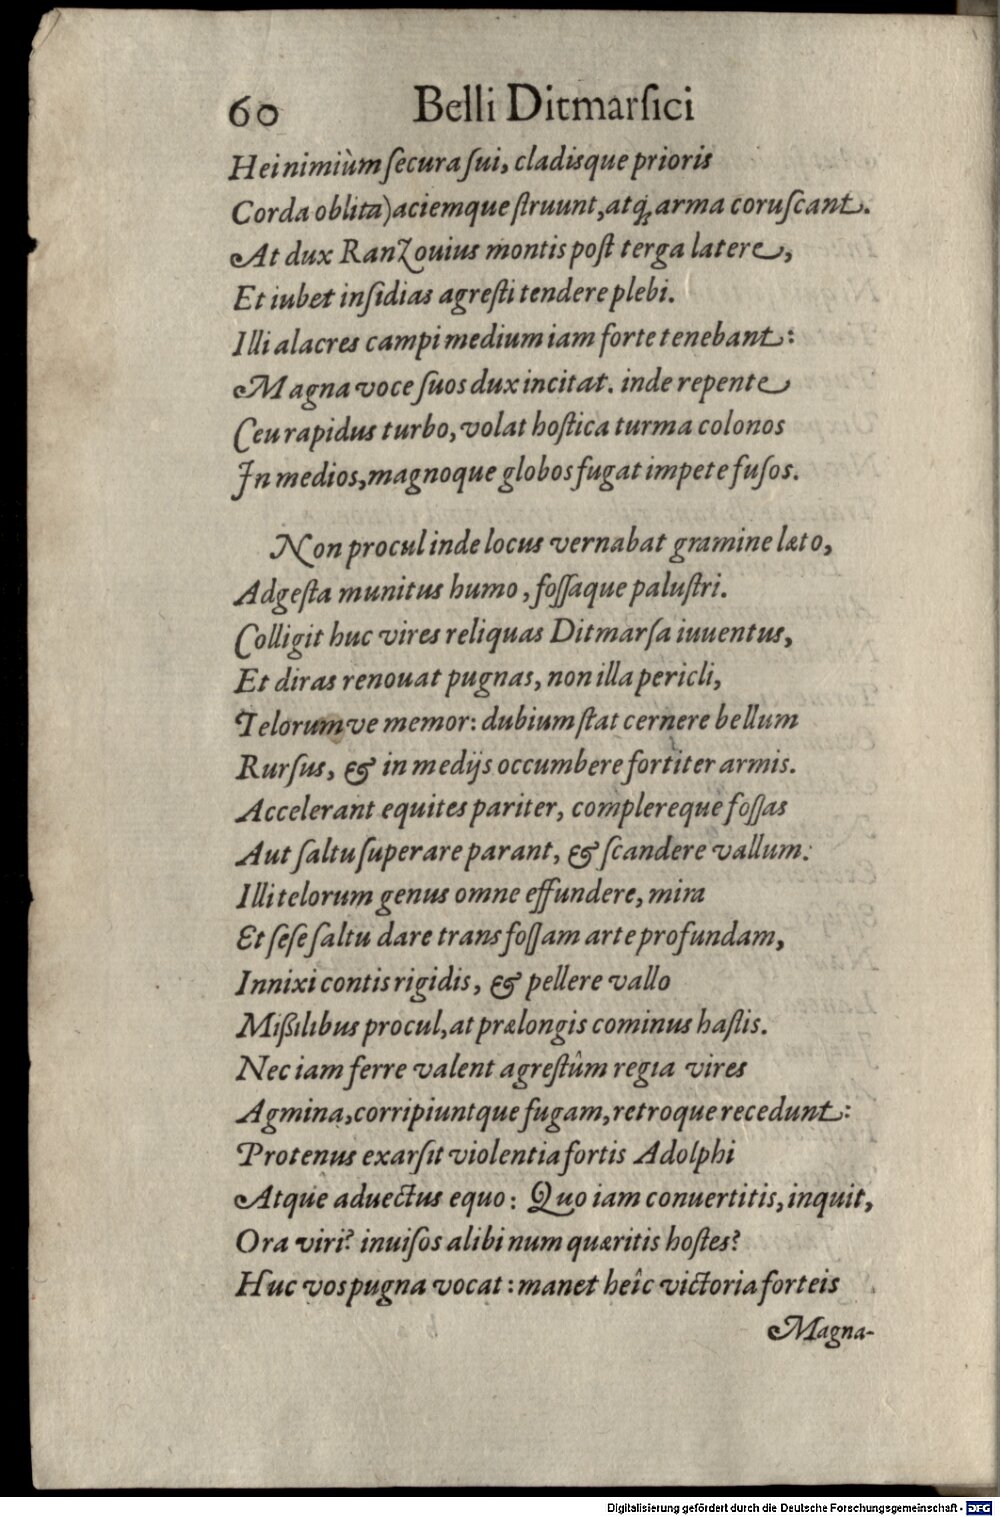 60 Belli Ditmarſici
Hei nimiùm ſecura ſui, cladisque prioris
Corda oblita) aciemque ſtruunt, atq; arma coruſcant.
At dux Ranzouius montis poſt terga latere,
Et iubet inſidias agreſti tendere plebi.
Illi alacres campi medium iam forte tenebant:
Magna voce ſuos dux incitat. inde repente
Ceu rapidus turbo, volat hoſtica turma colonos
In medios, magnoque globos fugat impete fuſos.
Non procul inde locus vernabat gramine læto,
Adgeſta munitus humo, foſſaque paluſtri.
Colligit huc vires reliquas Ditmarſa iuuentus,
Et diras renouat pugnas, non illa pericli,
Telorumve memor: dubium ſtat cernere bellum
Rurſus, & in medijs occumbere fortiter armis.
Accelerant equites pariter, complereque foſſas
Aut ſaltu ſuperare parant, & ſcandere vallum:
Illi telorum genus omne effundere, mira
Et ſeſe ſaltu dare trans foſſam arte profundam,
Innixi contis rigidis, & pellere vallo
Mißilibus procul, at prælongis cominus haſtis.
Nec iam ferre valent agreſtûm regia vires
Agmina, corripiuntque fugam, retroque recedunt:
Protenus exarſit violentia fortis Adolphi
Atque aduectus equo: Quo iam conuertitis, inquit,
Ora viri? inuiſos alibi num quæritis hoſtes?
Huc vos pugna vocat: manet heîc victoria forteis
Magna-
Digitalisierung gefördert durch die Deutsche Forschungsgemeinschaft - DFG